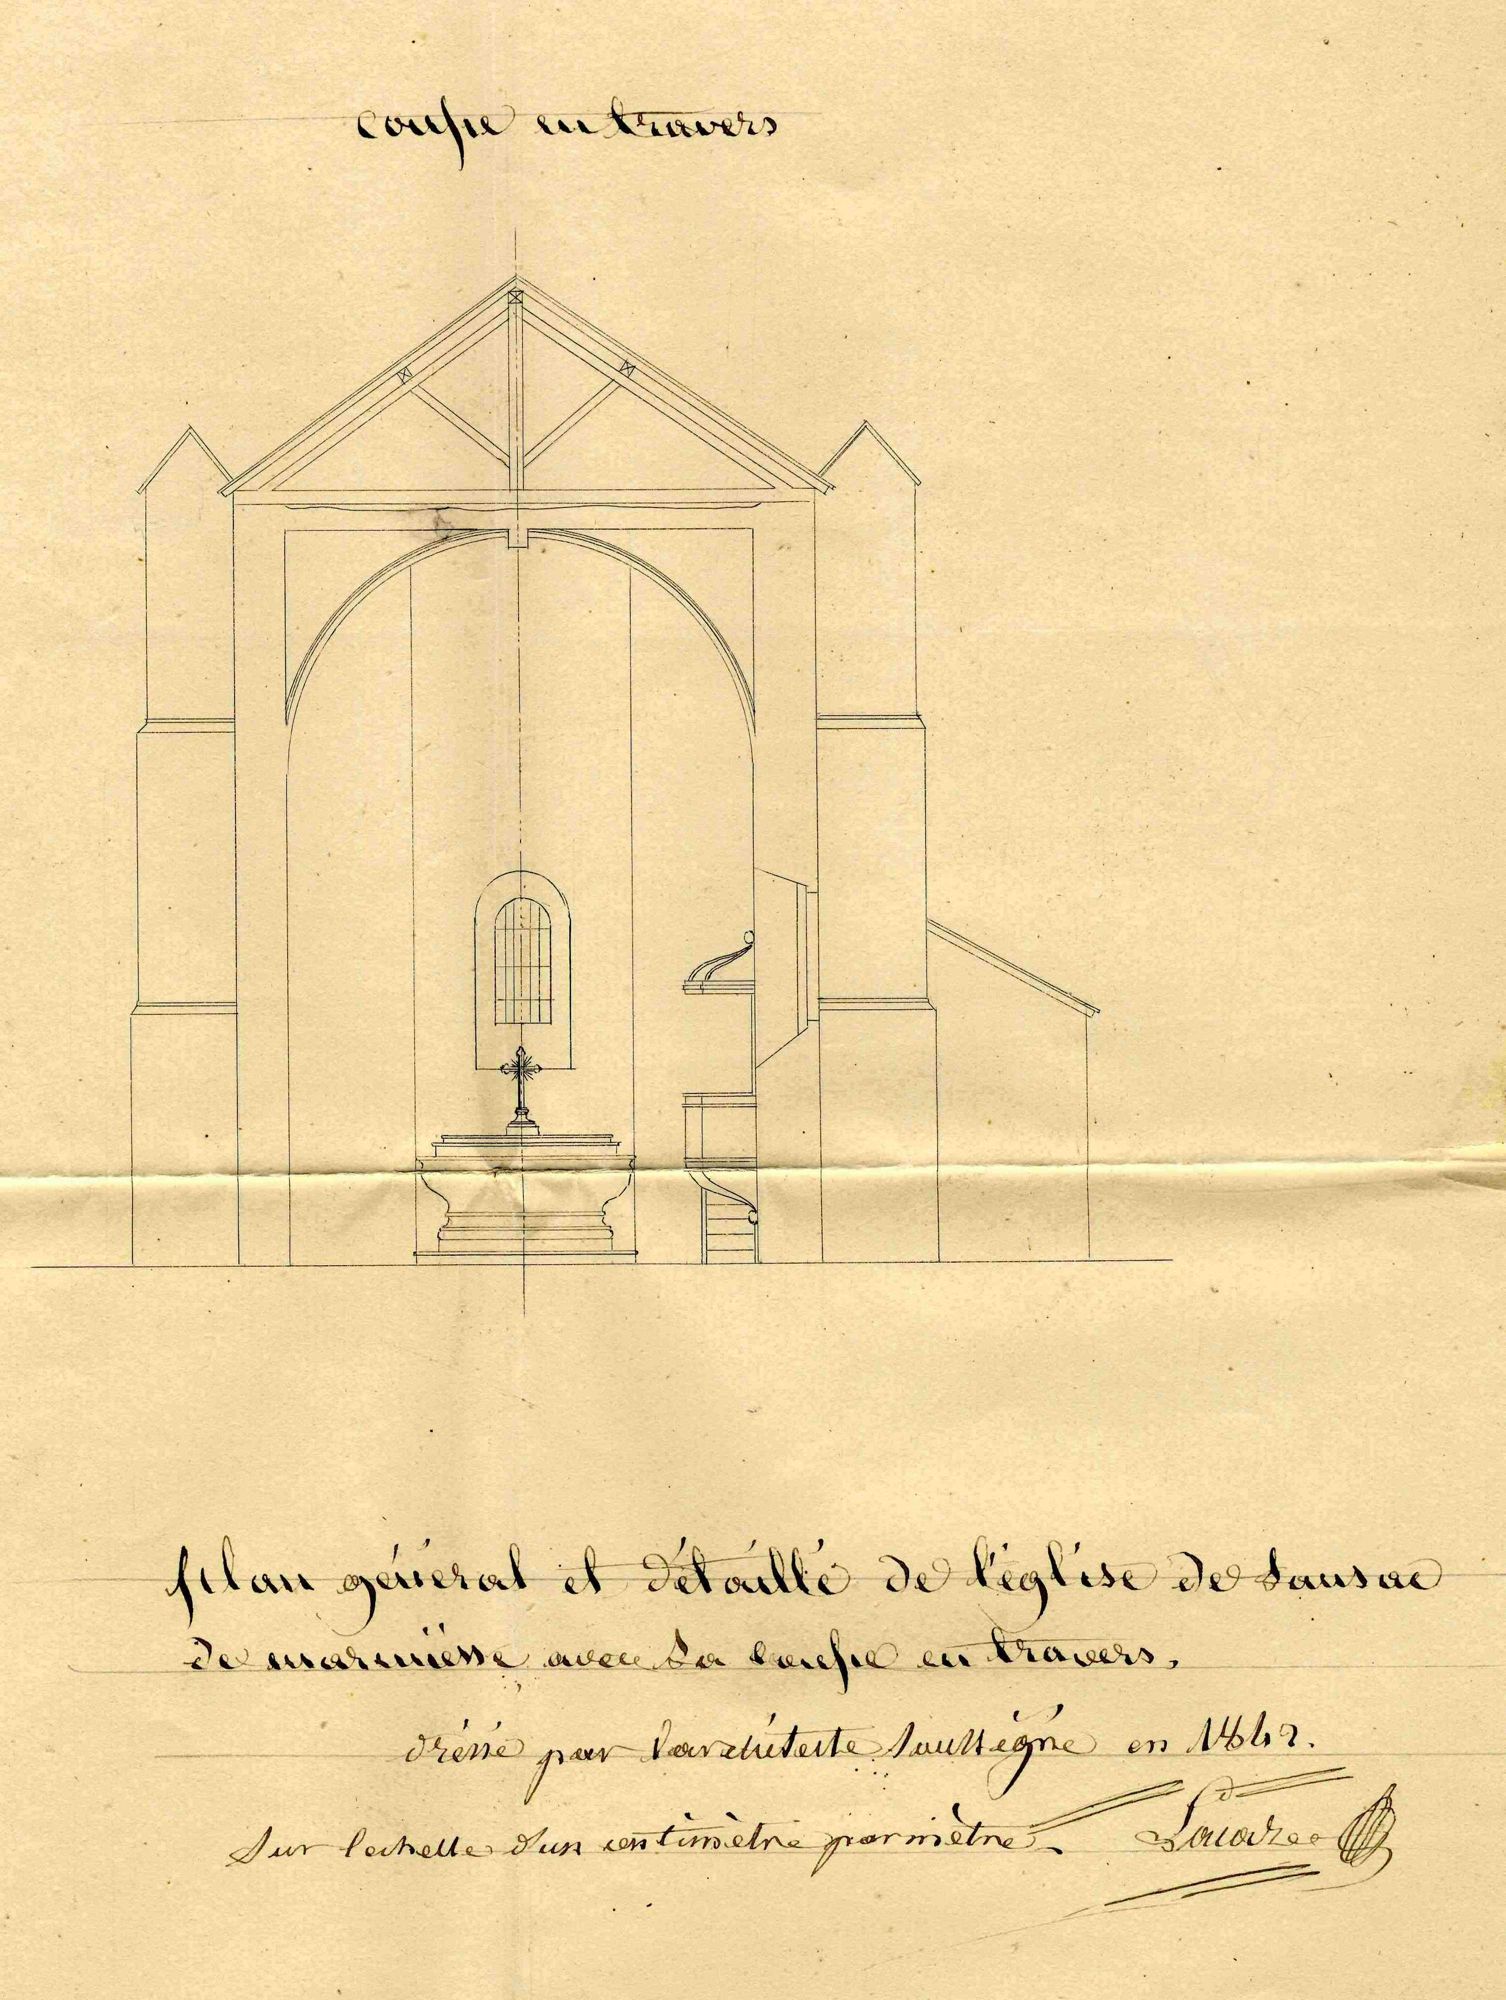 Coupe en travers
Plan général et détaillé de l'église de Sansac
de marmiesse avec sa coupe en travers.
dréssé par l'architecte en 1842.
Sur lechelle d'un centimètre par mètre.